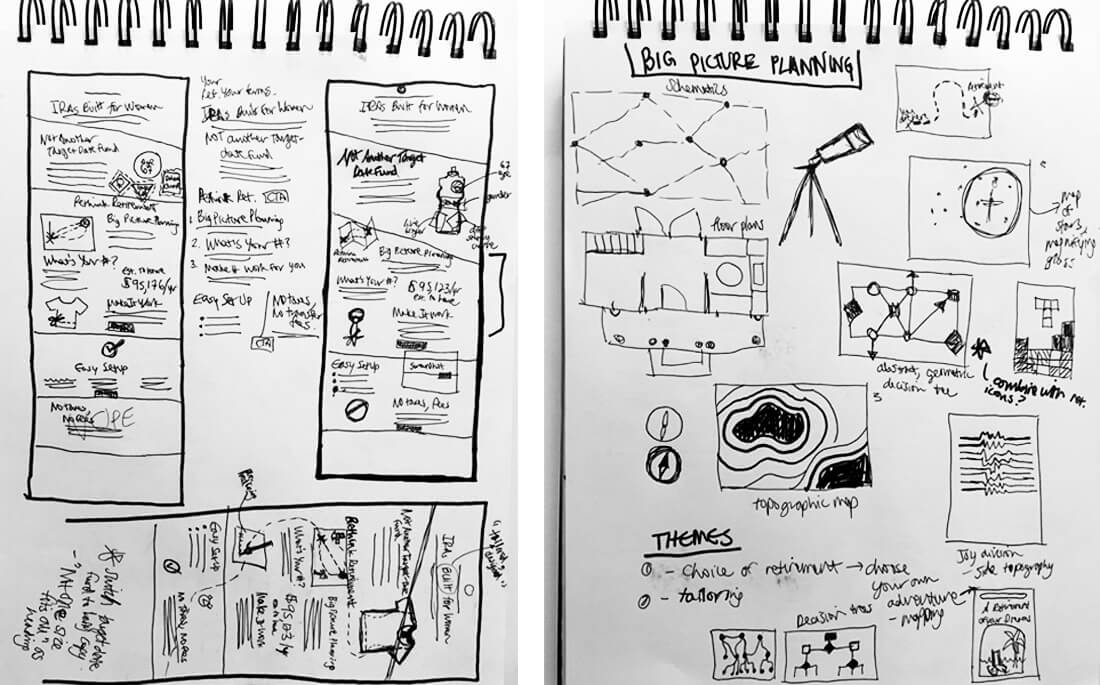 IRAs Built for Women
Not Another
Target Date Fund
Rethink Retirement
Big Picture Planning
What's Your #?
est. in home
$95,176/yr
Make It Work
Easy Setup
No taxes,
No fees
Your
Ret. Your terms.
IRAs Built For Women
NOT another Target-
date Fund
Rethink Ret.
CTA
1. Big Picture Planning
2. What's Your #?
3. Make it work for you
Easy Set Up
No taxes,
No transfer
fees.
CTA
IRAs Built for Women
Not Another Target
Date Fund
Big Picture Planning
What's Your #?
$95,123/yr
est. in home
Make It Work
Easy Setup
No taxes, Fees
IRAs Built for Women
Not Another Target Date
Fund
Rethink Retirement
Big Picture Planning
What's Your #?
$95,123/yr
Make It Work
Easy Set Up
No taxes, No Fees
Switch target date
heading
BIG PICTURE PLANNING
Schematics
floor plans
map
of
stars,
magnifying
glass
abstract, geometric
decision tree
combine with ret.
icons?
topographic map
Joy division
- side topography
THEMES
① - Choice of retirement → choose
your own
adventure
- mapping
② - tailoring
Decision trees
A Retirement
of your Dreams